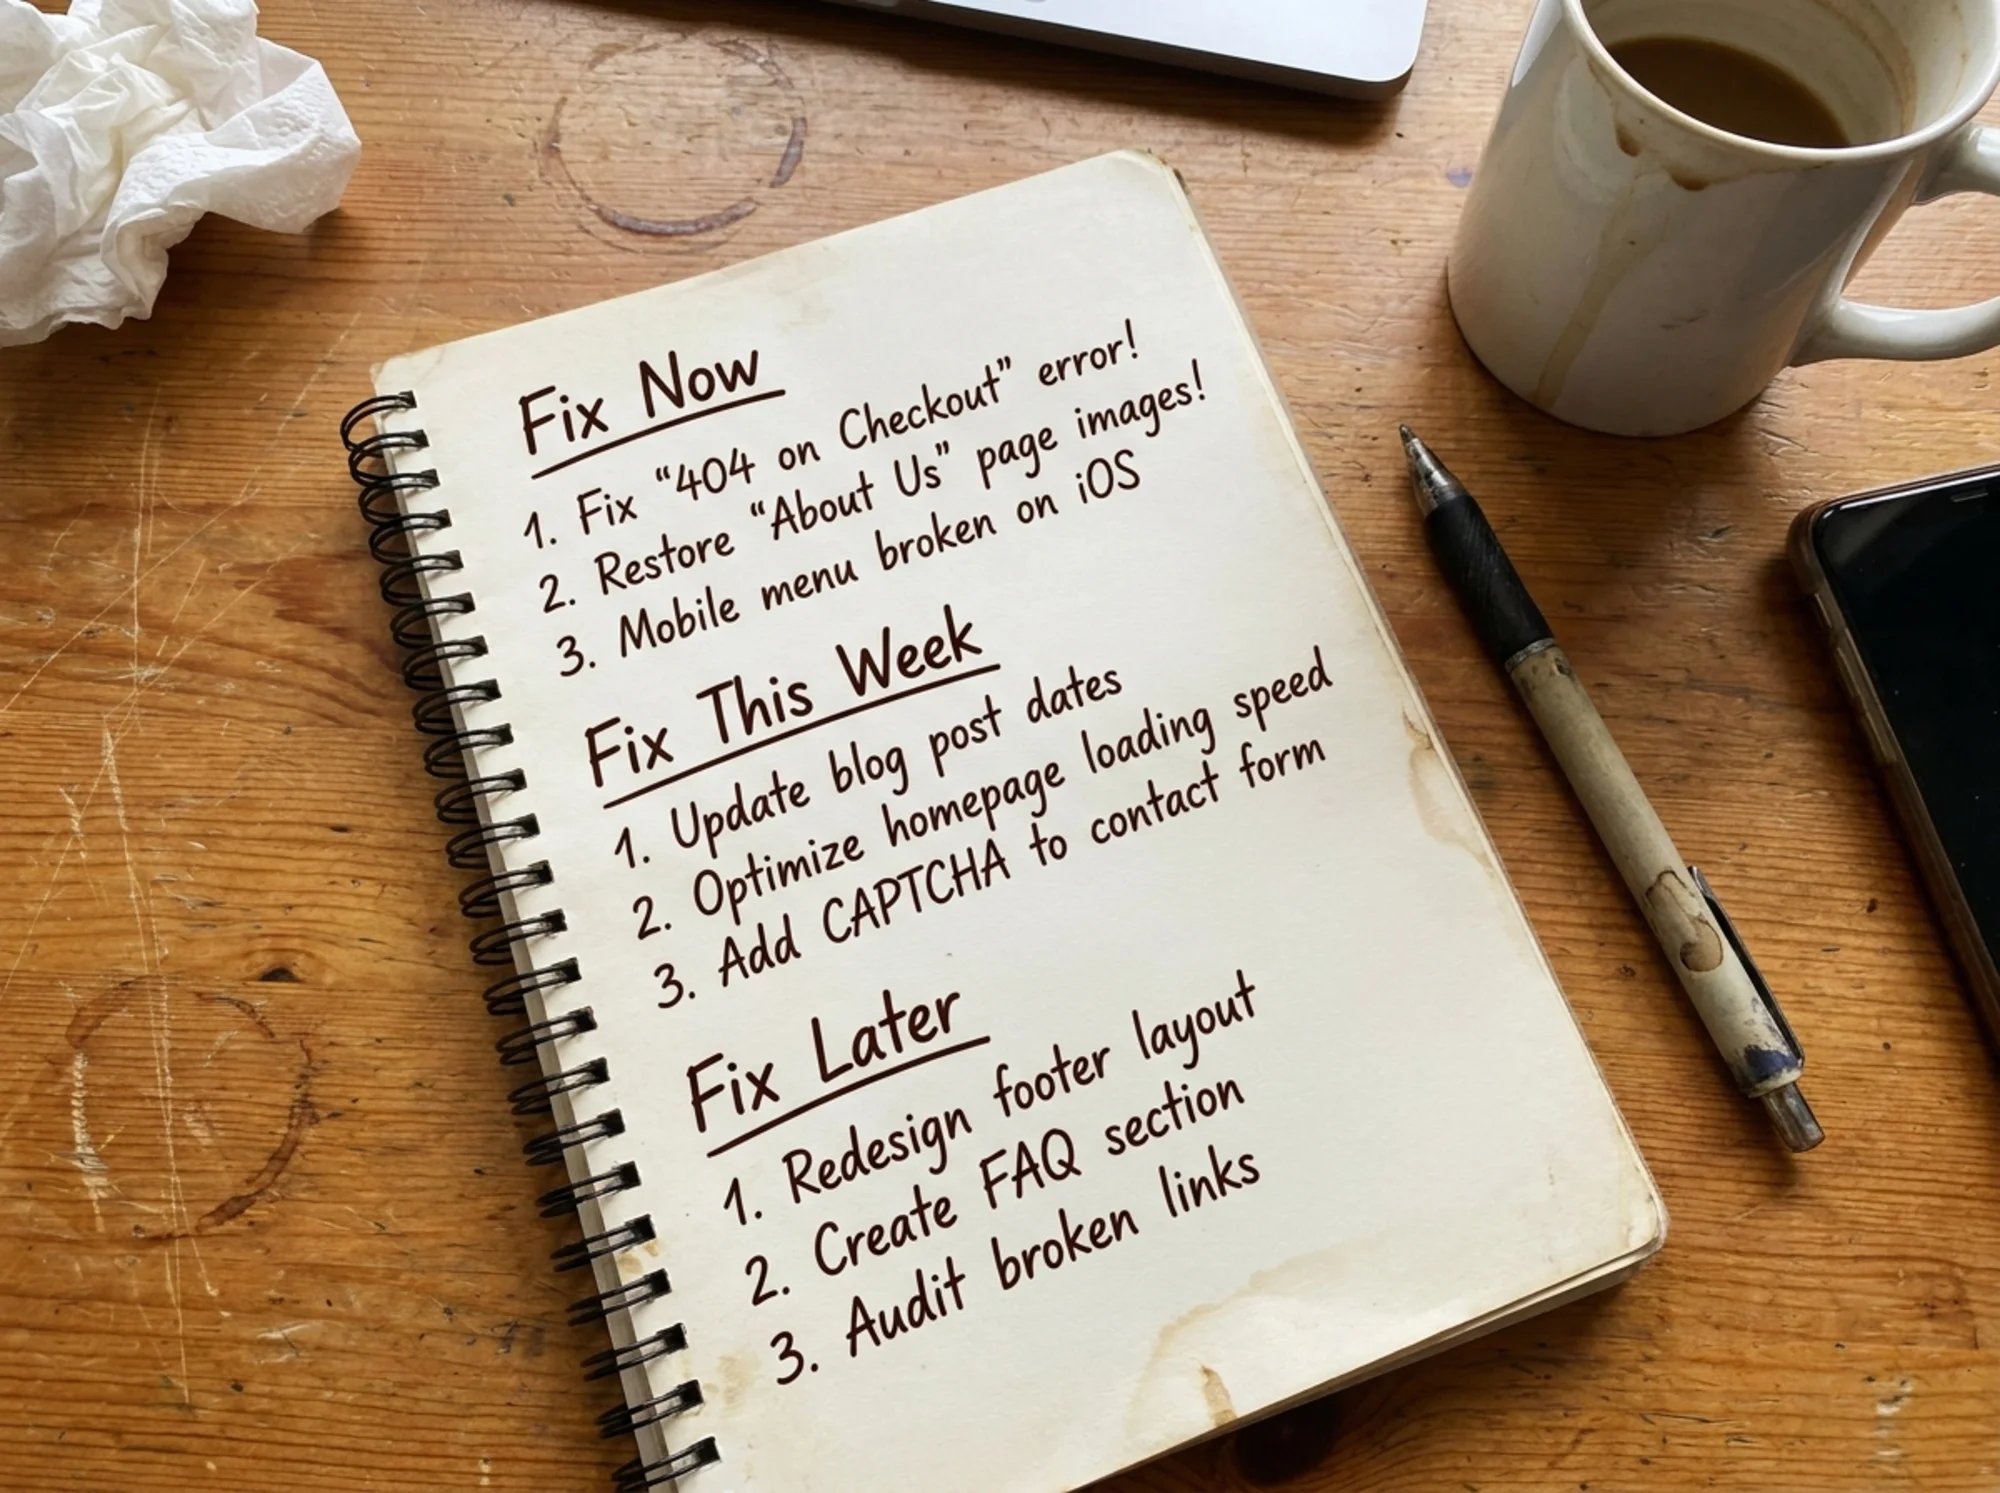 Fix Now
1. Fix “404 on Checkout” error!
2. Restore “About Us” page images!
3. Mobile menu broken on iOS
Fix This Week
1. Update blog post dates
2. Optimize homepage loading speed
3. Add CAPTCHA to contact form
Fix Later
1. Redesign footer layout
2. Create FAQ section
3. Audit broken links